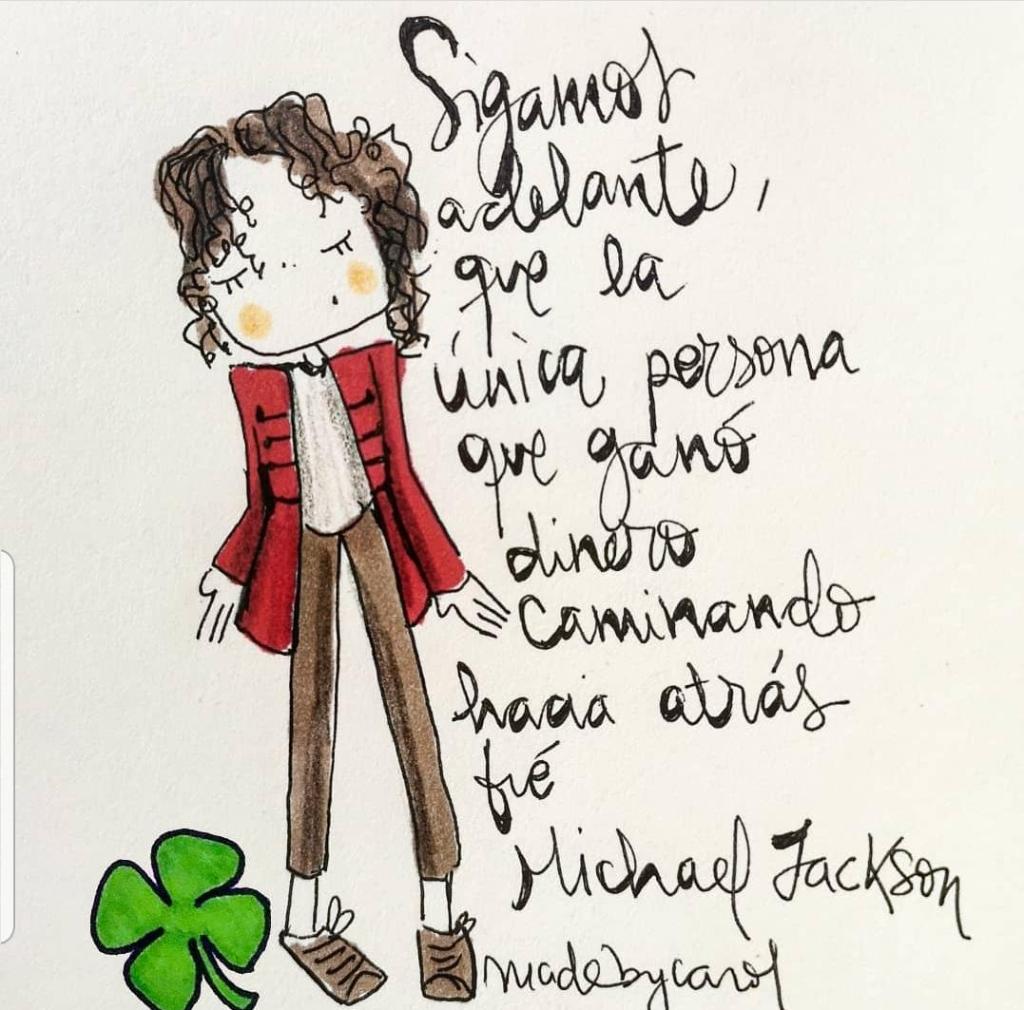 Sigamos
adelante,
que la
única persona
que ganó
dinero
caminando
hacia atrás
fué
Michael Jackson
madebycarol